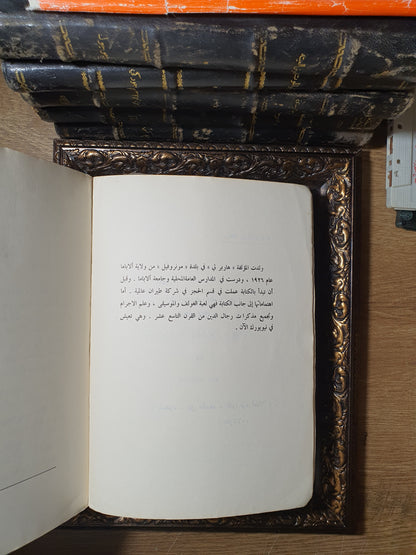 ولدت المؤلفة « هاربر لي » في بلدة « مونروفيل » من ولاية ألاباما
عام ١٩٢٦ ، ودرست في المدارس العامة المحلية وجامعة ألاباما . وقبل
أن تبدأ بالكتابة عملت في قسم الحجز في شركة طيران عالمية . أما
اهتماماتها إلى جانب الكتابة فهي لعبة الغولف والموسيقى ، وعلم الاجرام
وتجميع مذكرات رجال الدين من القرن التاسع عشر . وهي تعيش
في نيويورك الآن .